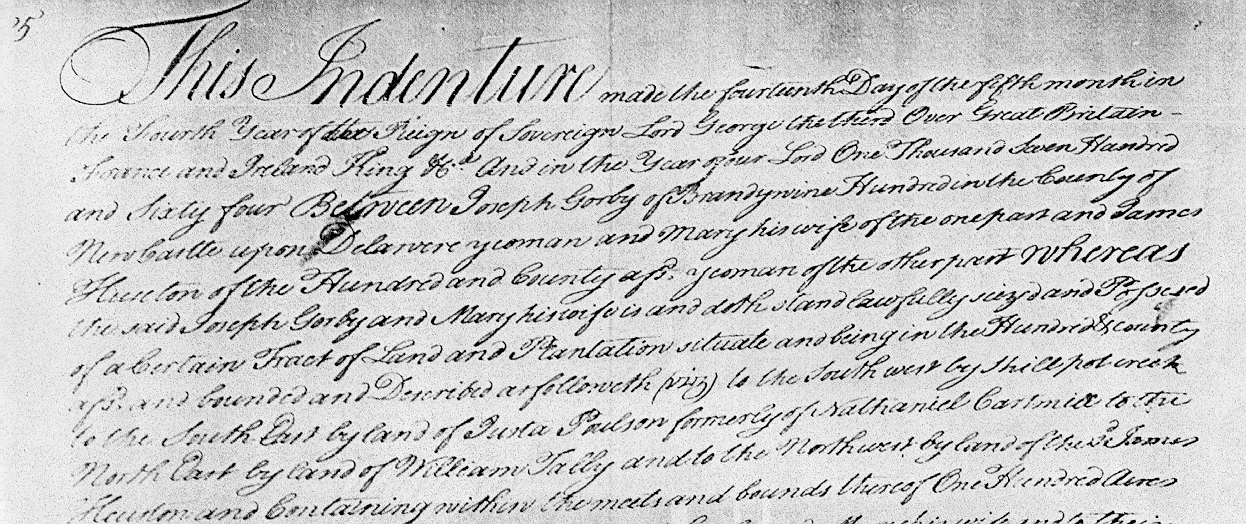 25
This Indenture made the fourteenth Day of the fifth month in
the Fourth Year of the Reign of Sovereign Lord George the third Over Great Britain -
France and Ireland King &c. And in the Year of our Lord One Thousand Seven Hundred
and Sixty four Between Joseph Gorby of Brandywine Hundred in the County of
Newcastle upon Delawere yeoman and Mary his wife of the one part and James
Huston of the Hundred and County afsd. yeoman of the other part Whereas
the said Joseph Gorby and Mary his wife is and doth stand lawfully siezd and Possesed
of a Certain Tract of Land and Plantation situate and being in the Hundred & county
afsd. and bounded and Described as followeth (viz) to the South west by Shillpot creek
to the South East by land of Justa Poulson formerly of Nathaniel Cartmill to the
North East by land of William Tally and to the Northwest by land of the sd. James
Heuston and Containing within the meets and bounds thereof One Hundred Acres
Mary his wife and to their